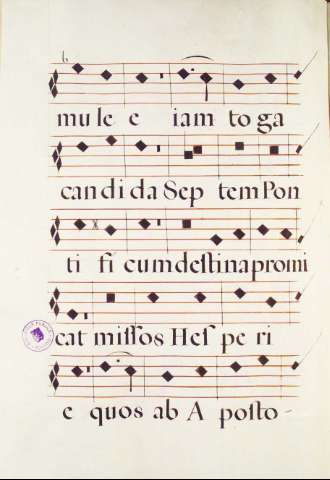 mu le e iam to ga
can di da Sep tem Pon
ti fi cum deſtina promi
cat miſſos Heſ pe ri
e quos ab A poſto -